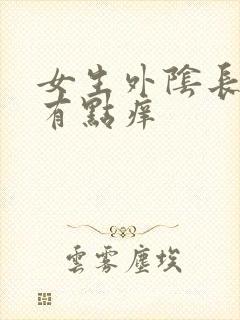 女生外陰長
有點痒
雲雾塵埃